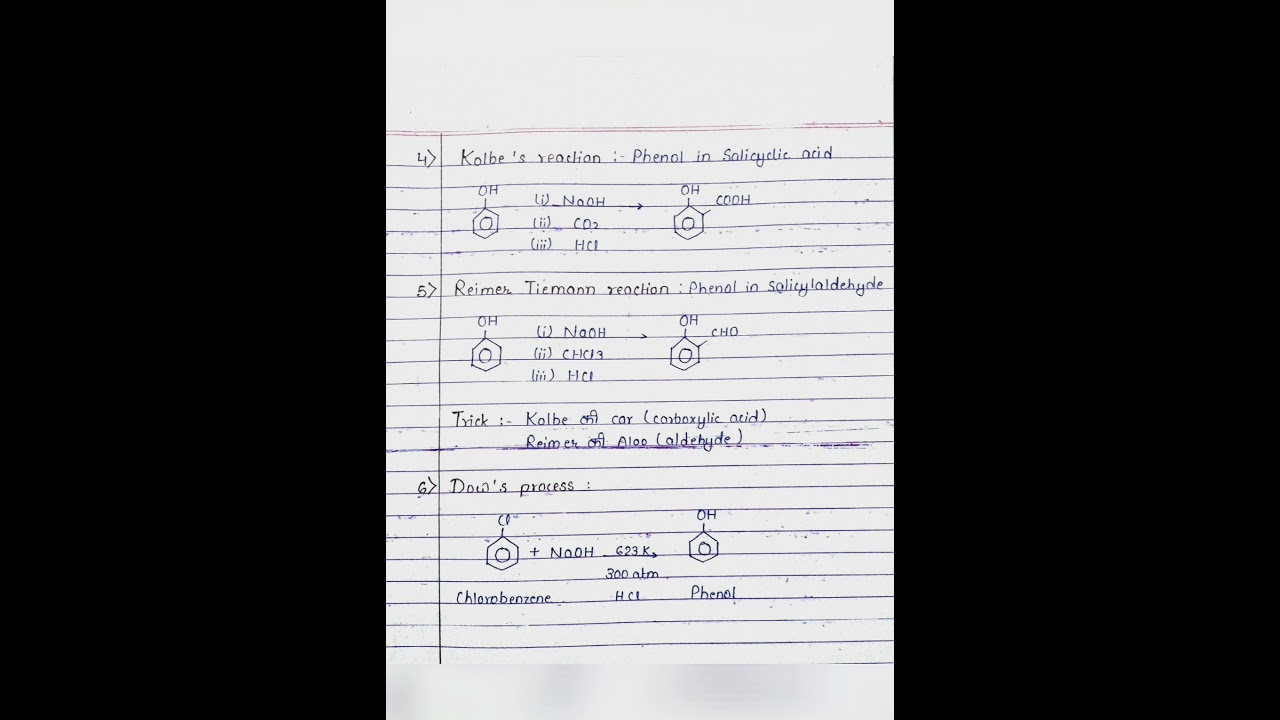 4) Kolbe's reaction :- Phenol in Salicyclic acid
OH (i) NaOH → OH COOH
(ii) CO2
(iii) HCl
5) Reimer Tiemann reaction : Phenol in salicylaldehyde
OH (i) NaOH → OH CHO
(ii) CHCl3
(iii) HCl
Trick :- Kolbe की car (carboxylic acid)
Reimer की Aloo (aldehyde)
6) Dow's process :
Cl OH
+ NaOH 623K →
300 atm.
Chlorobenzene HCl Phenol